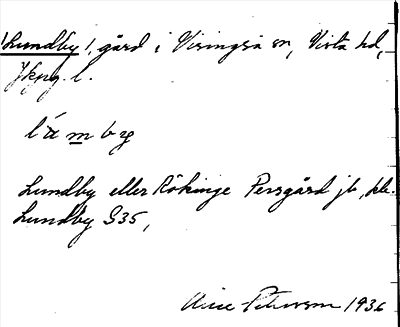 ! Lundby !, gård i Visingsö sn, Vista hd,
Jkpg. l.
lámby
Lundby eller Rökinge Persgård jb, kb.
Lundby S35,
Petersson 1936